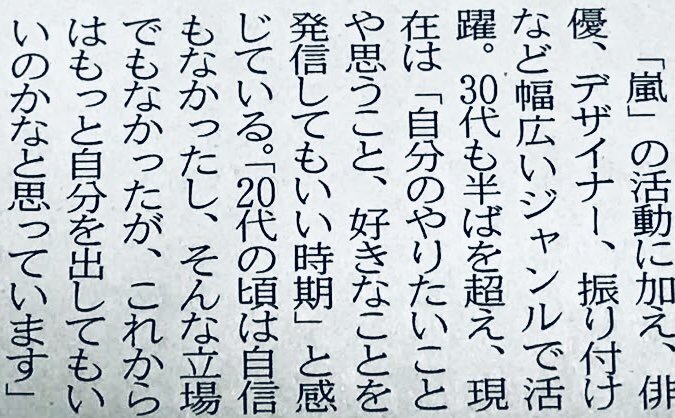 「嵐」の活動に加え、俳
優、デザイナー、振り付け
など幅広いジャンルで活
躍。30代も半ばを超え、現
在は「自分のやりたいこと
や思うこと、好きなことを
発信してもいい時期」と感
じている。「20代の頃は自信
もなかったし、そんな立場
でもなかったが、これから
はもっと自分を出してもい
いのかなと思っています」